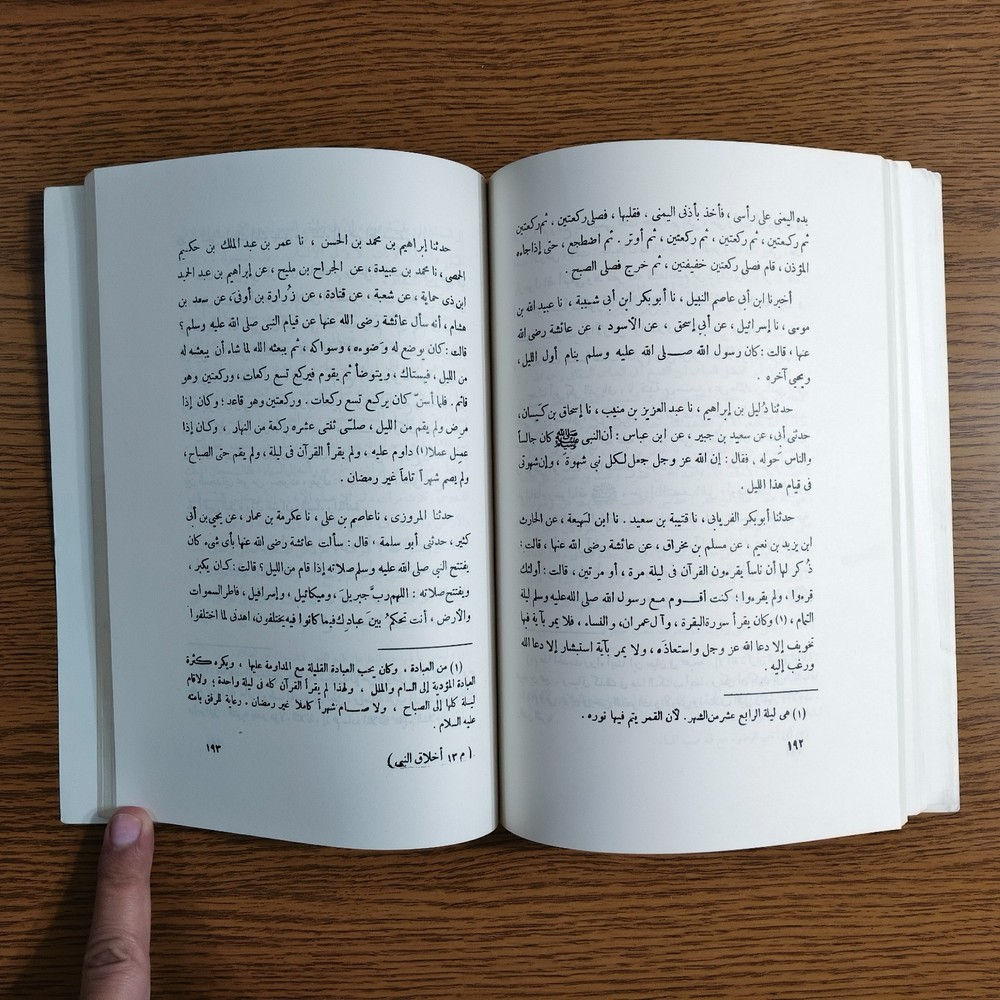 يده اليمنى على رأسى ، فأخذ بأذنى اليمنى ، فقلبها ، فصلى ركعتين ، ثم ركعتين
ثم ركعتين ، ثم ركعتين ، ثم ركعتين ، ثم أوتر . ثم اضطجع ، حتى إذا جاءه
المؤذن ، قام فصلى ركعتين خفيفتين ، ثم خرج فصلى الصبح .
أخبرنا ابن أبى عاصم النبيل ، نا أبو بكر ابن أبى شيبة ، نا عبيد الله بن
موسى ، نا إسرائيل ، عن أبى إسحق ، عن الأسود ، عن عائشة رضى الله
عنها ، قالت : كان رسول الله صلى الله عليه وسلم ينام أول الليل ،
ويحيى آخره .
حدثنا دُليل بن إبراهيم ، نا عبد العزيز بن منيب ، نا إسحاق بن كَيسان ،
حدثنى أبى ، عن سعيد بن جبير ، عن ابن عباس : أن النبى ﷺ كان جالساً
والناس حَوله ، فقال : إن الله عز وجل جعل لكل نبى شهوة ، وإن شهوتى
فى قيام هذا الليل .
حدثنا أبو بكر الفريابى ، نا قتيبة بن سعيد . نا ابن لَهيعة ، عن الحارث
ابن يزيد بن نعيم ، عن مسلم بن مخراق ، عن عائشة رضى الله عنها ، قالت :
ذُكر لها أن ناساً يقرءون القرآن فى ليلة مرة ، أو مرتين ، قالت : أولئك
قرءوا ، ولم يقرءوا ؛ كنت أقوم مع رسول الله صلى الله عليه وسلم ليلة
التمام ، (١) وكان يقرأ سورة البقرة ، وآل عمران ، والنساء ، فلا يمر بآية فيها
تخويف إلا دعا الله عز وجل واستعاذه ، ولا يمر بآية استبشار إلا دعا الله
ورغب إليه .
(١) هى ليلة الرابع عشر من الشهر . لأن القمر يتم فيها نوره .
١٩٢
حدثنا إبراهيم بن محمد بن الحسن ، نا عمر بن عبد الملك بن حكيم
الحمصى ، نا محمد بن عبيدة ، عن الجراح بن مليح ، عن إبراهيم بن عبد الحميد
ابن ذى حماية ، عن شعبة ، عن قتادة ، عن زُرارة بن أوفى ، عن سعد بن
هشام ، أنه سأل عائشة رضى الله عنها عن قيام النبى صلى الله عليه وسلم ؟
قالت : كان يوضع له وَضوءه ، وسواكه ، ثم يبعثه الله لما شاء أن يبعثه له
من الليل ، فيستاك ، ويتوضأ ثم يقوم فيركع تسع ركعات ، وركعتين وهو
قائم . فلما أسنّ كان يركع تسع ركعات . وركعتين وهو قاعد ؛ وكان إذا
مرض ولم يقم من الليل ، صلّى ثنتى عشره ركعة من النهار ، وكان إذا
عمِل عملا (١) داوم عليه ، ولم يقرأ القرآن فى ليلة ، ولم يقم حتى الصباح ،
ولم يصم شهراً تاماً غير رمضان .
حدثنا المروزى ، نا عاصم بن على ، نا عكرمة بن عمار ، عن يحيى بن أبى
كثير ، حدثنى أبو سلمة ، قال : سألت عائشة رضى الله عنها بأى شىء كان
يفتتح النبي صلى الله عليه وسلم صلاته إذا قام من الليل ؟ قالت : كان يكبر ،
ويفتتح صلاته : اللهم ربَّ جبريلَ ، وميكائيل ، وإسرافيل ، فاطر السموات
والأرض ، أنت تحكمُ بينَ عبادِك فيما كانوا فيه يختلفون ، اهدنى لما اختلفوا
(١) من العبادة ، وكان يحب العبادة القليلة مع المداومة عليها ، ويكره كثرة
العبادة المؤدية إلى السام والملل . ولهذا لم يقرأ القرآن كله فى ليلة واحدة ؛ ولاقام
ليـلة كلها إلى الصباح ، ولا صام شهراً كاملا غير رمضان . رعاية للرفق بامته
عليه السلام .
١٩٣
( م ١٣ أخلاق النبى )